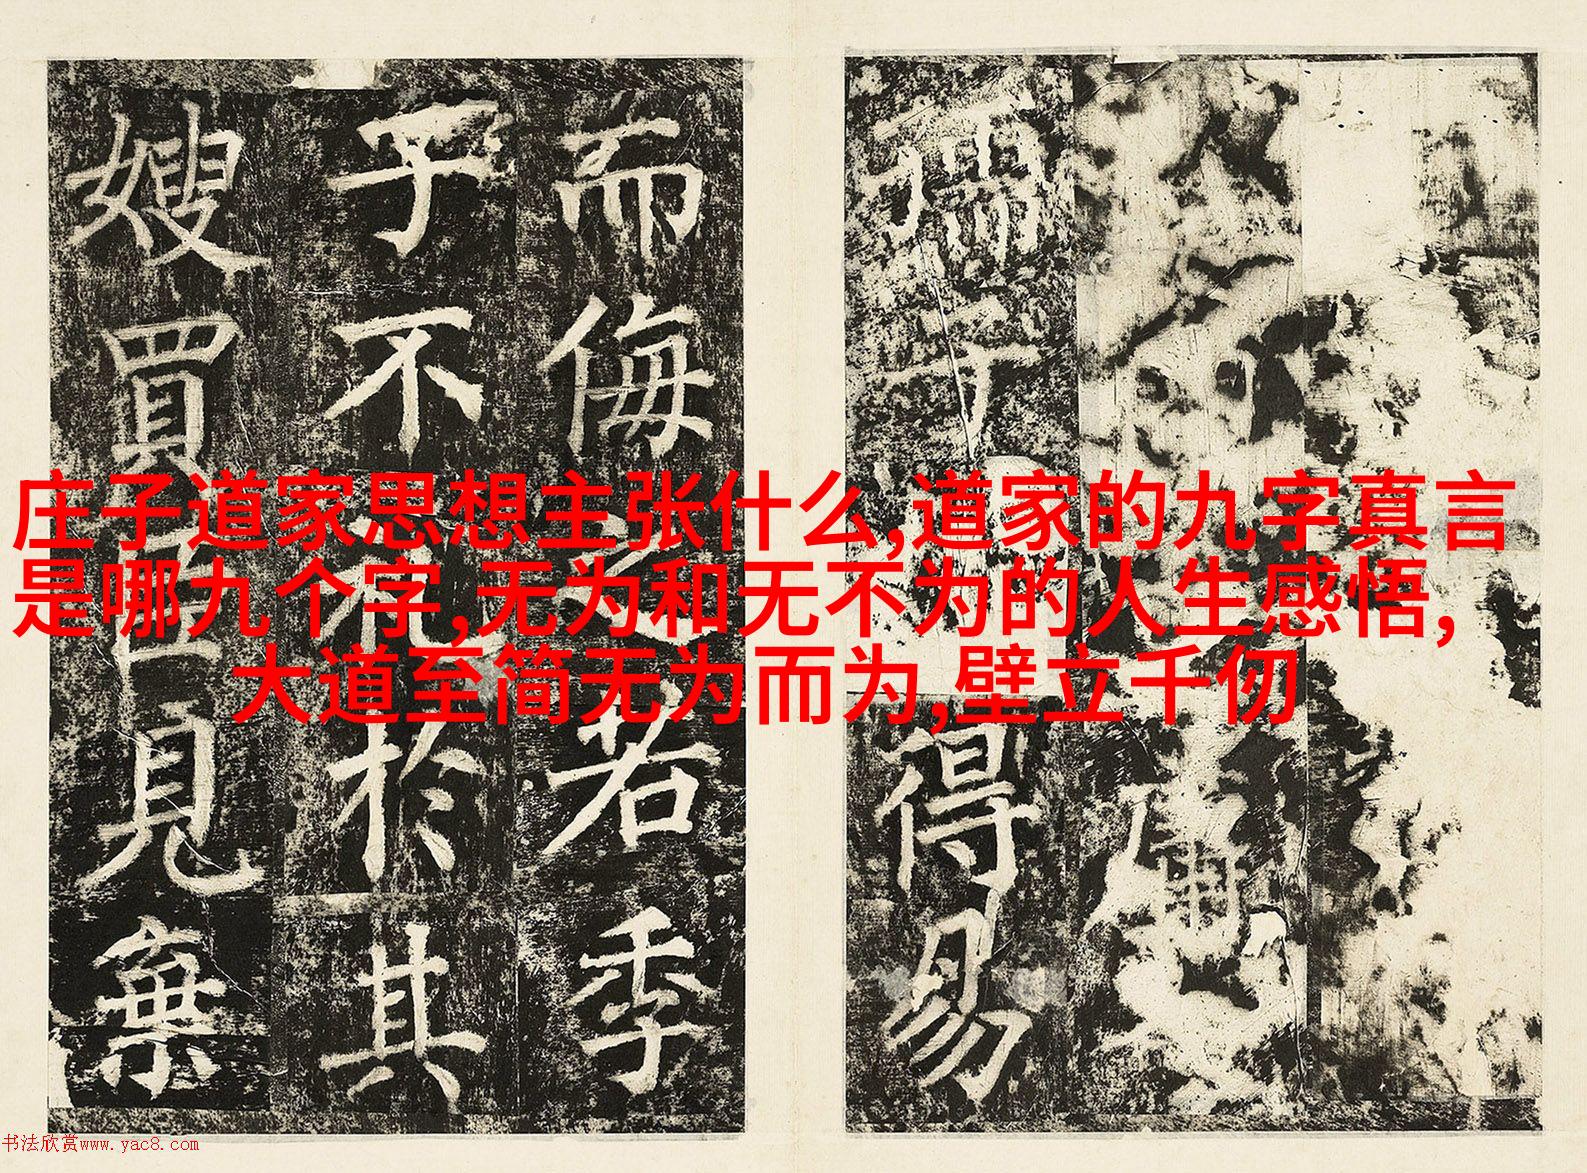 庄子道家思想主张什么,道家的九字真言
是哪九个字,无为和无不为的人生感悟,
大道至简无为而为,壁立千仞
得易
而侮之若季
子不禮於其
嫂買臣見棄
书法欣赏www.yac8.com